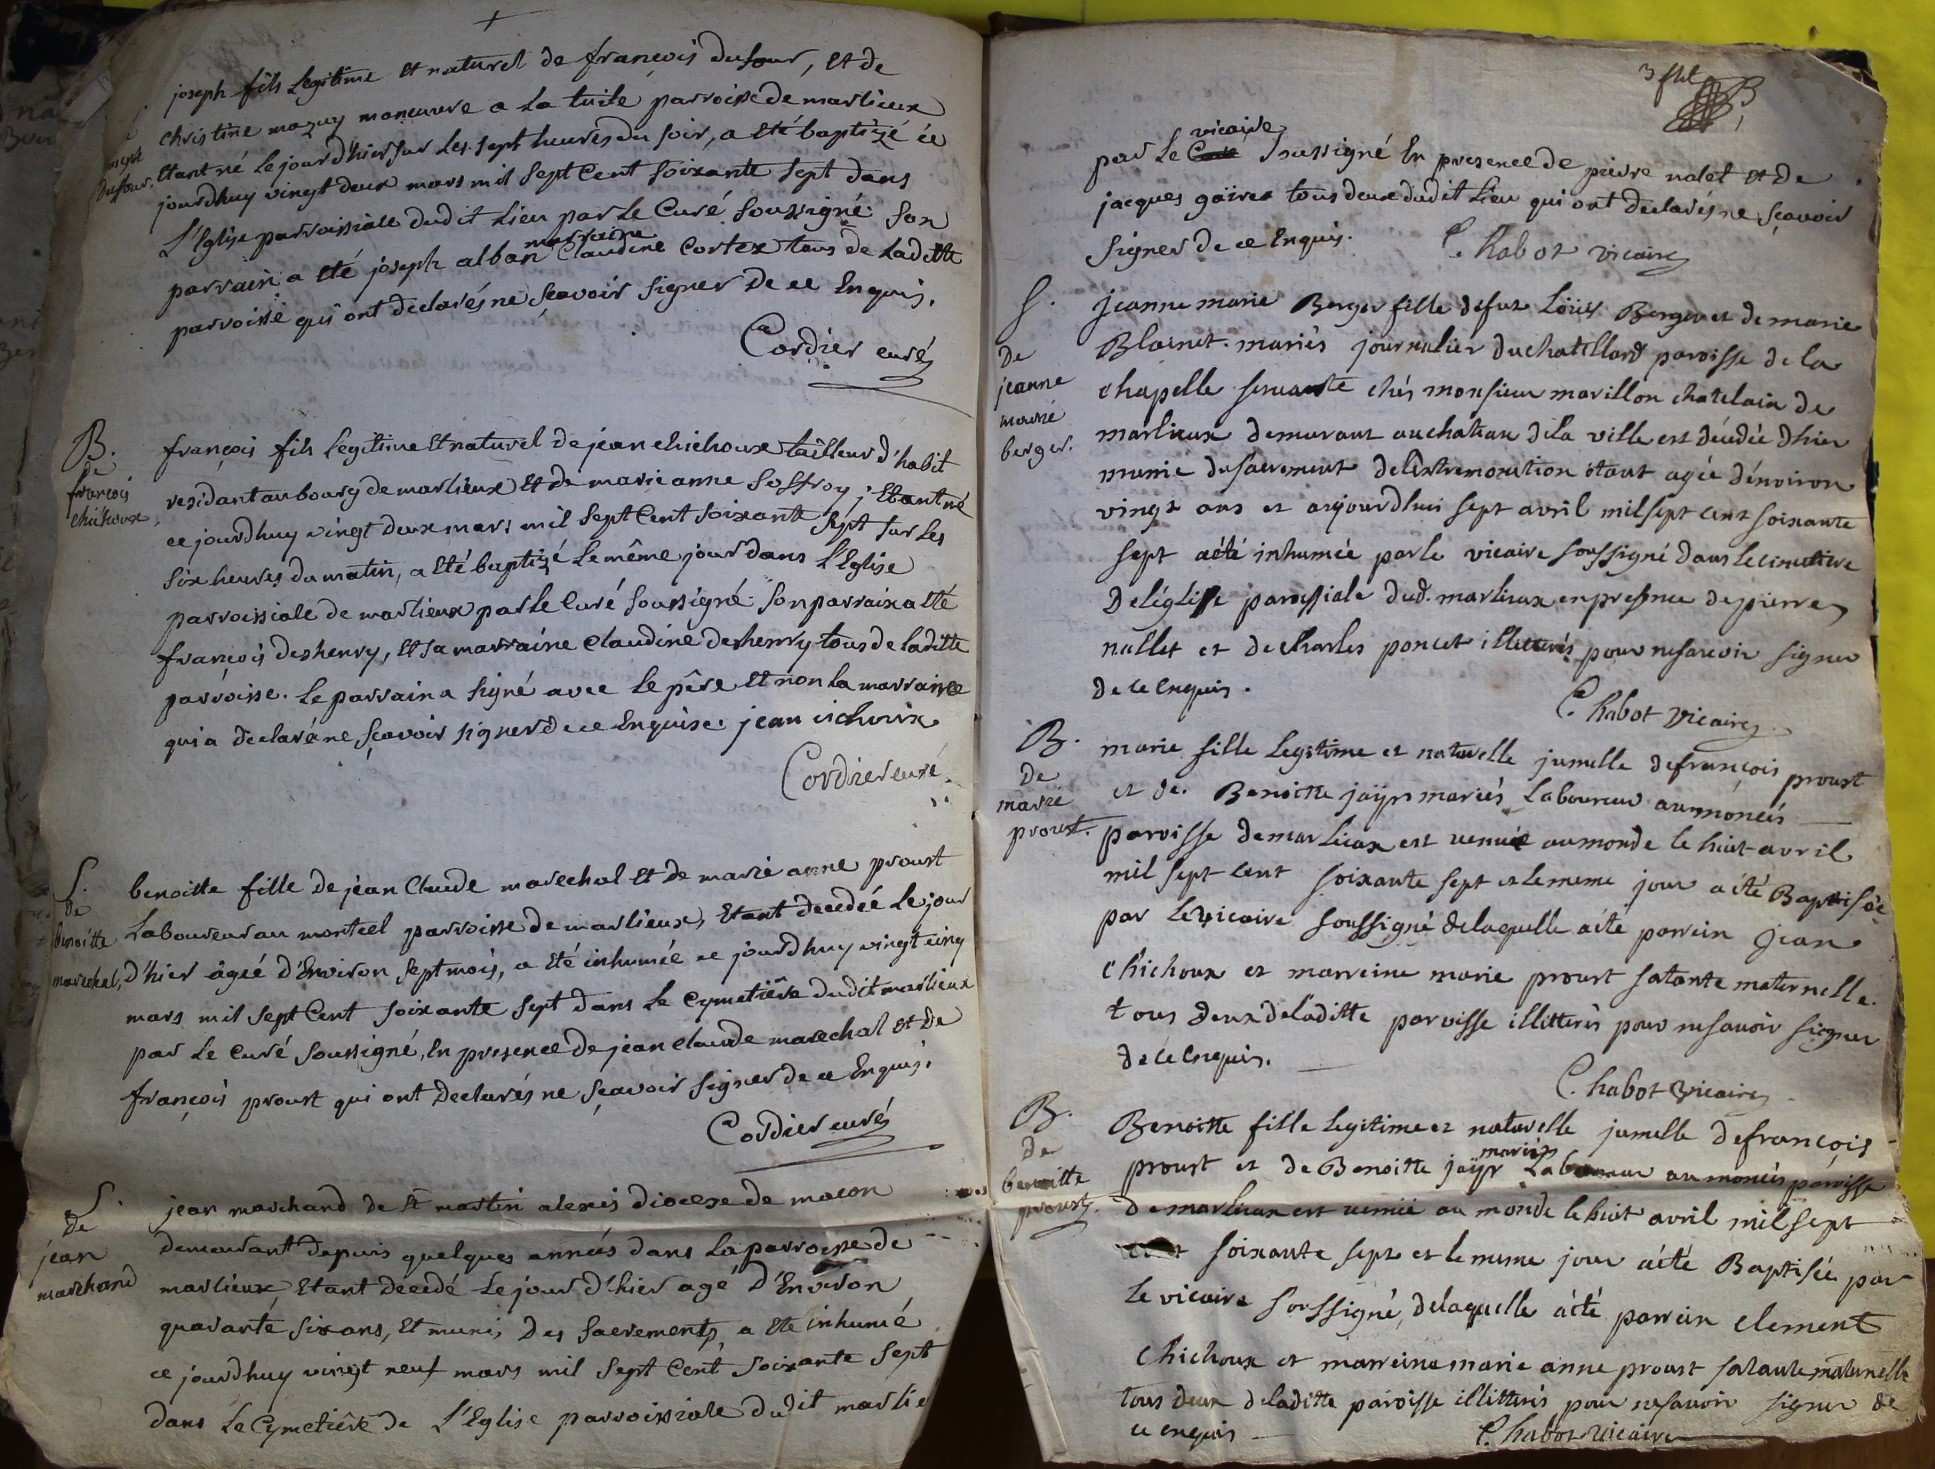 joseph fils Legitime et naturel de françois dufour, et de
christine mazuy manœuvre a La tuile parroisse de marlieux
Etant né Le jour d'hier sur Les sept heures du soir, a Eté baptizé ce
jourdhuy vingt deux mars mil sept Cent soixante sept dans
L'Eglise parroissiale dudit Lieu par Le Curé soussigné son
parrain a Eté joseph alban marraine Claudine Cortex tous de Laditte
parroisse qui ont declarés ne sçavoir signer de ce Enquis.
Cordier curé
dufour.
B.
de
françois
chichoux
françois fils Legitime et naturel de jean chichoux tailleur d'habit
residant au bourg de marlieux et de marie anne soffroy, Etant né
ce jourdhuy vingt deux mars mil sept Cent soixante sept sur Les
six heures du matin, a Eté baptizé Le même jour dans L'Eglise
parroissiale de marlieux par Le Curé soussigné son parrain a Eté
françois deshenry, Et sa marraine Claudine deshenry tous de laditte
parroisse. Le parrain a signé avec Le père Et non La marraine
qui a declaré ne sçavoir signer de ce Enquise. jean ichoux
Cordier curé.
S.
de
benoitte
marechal,
benoitte fille de jean Claude marechal Et de marie anne proust
Laboureur au monteel parroisse de marlieux, Etant decedée Le jour
d'hier âgée d'Environ sept mois, a Eté inhumée ce jourdhuy vingt cinq
mars mil sept Cent soixante sept dans Le Cymetière dudit marlieux
par Le Curé soussigné, En presence de jean Claude marechal et de
françois proust qui ont declarés ne sçavoir signer de ce Enquis.
Cordier curé
S.
de
jean
marchand
jean marchand de st martin alexis diocese de macon
demeurant depuis quelques années dans La parroisse de
marlieux Etant décedé Le jour d'hier agé d'Environ
quarante six ans, Et muni des sacrements, a Eté inhumé
ce jourdhuy vingt neuf mars mil sept Cent soixante sept
dans Le Cymetière de L'Eglise parroissiale dudit marlie
par Le Curé vicaire soussigné En presence de pierre nalet et de
jacques goires tous deux dudit Lieu qui ont declarés ne sçavoir
signer de ce Enquis. C. habot vicaire
S.
de
jeanne
marie
berger.
jeanne marie Berger fille defut Loüis Berger et de marie
Blainet mariés journalier du chatellard paroisse de la
chapelle servante chés monsieur marillon chatelain de
marlieux demeurant au chateau dela ville est décédée dhier
munie du sacrement del'extremonction étant agée d'énviron
vingt ans et aujourdhui sept avril mil sept cent soixante
sept a été inhumée par le vicaire soussigné dans le cimetiere
de léglise paroissiale dud. marlieux en presence de pierre
nallet et de charles poncet illitterés pour ne savoir signer
de ce enquis.
C. habot vicaire
B.
de
marie
proust.
marie fille legitime et naturelle jumelle de françois proust
et de Benoitte jaÿr mariés Laboureur au monéés
paroisse de marlieux est venuë au monde le huit avril
mil sept cent soixante sept et le meme jour a été Baptisée
par le vicaire soussigné de laquelle a été parrein jean
chichoux et marreine marie proust sa tante maternelle
tous deux de laditte paroisse illitterés pour ne savoir signer
de ce enquis.
C. habot vicaire
B.
de
benoitte
proust.
Benoitte fille legitime et naturelle jumelle de françois
proust et de Benoitte jaÿr mariés Laboureur au monéés paroisse
de marlieux est venuë au monde le huit avril mil sept
cent soixante sept et le meme jour a été Baptisée par
le vicaire soussigné, de laquelle a été parrein clement
chichoux et marreine marie anne proust sa tante maternelle
tous deux de laditte paroisse illitterés pour ne savoir signer de
ce enquis C. habot vicaire